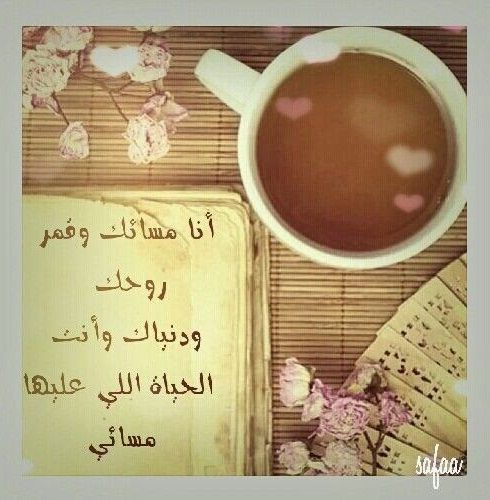 أنا مسائك وقمر
روحك
ودنياك وأنت
الحياة اللي عليها
مسائي
safaa